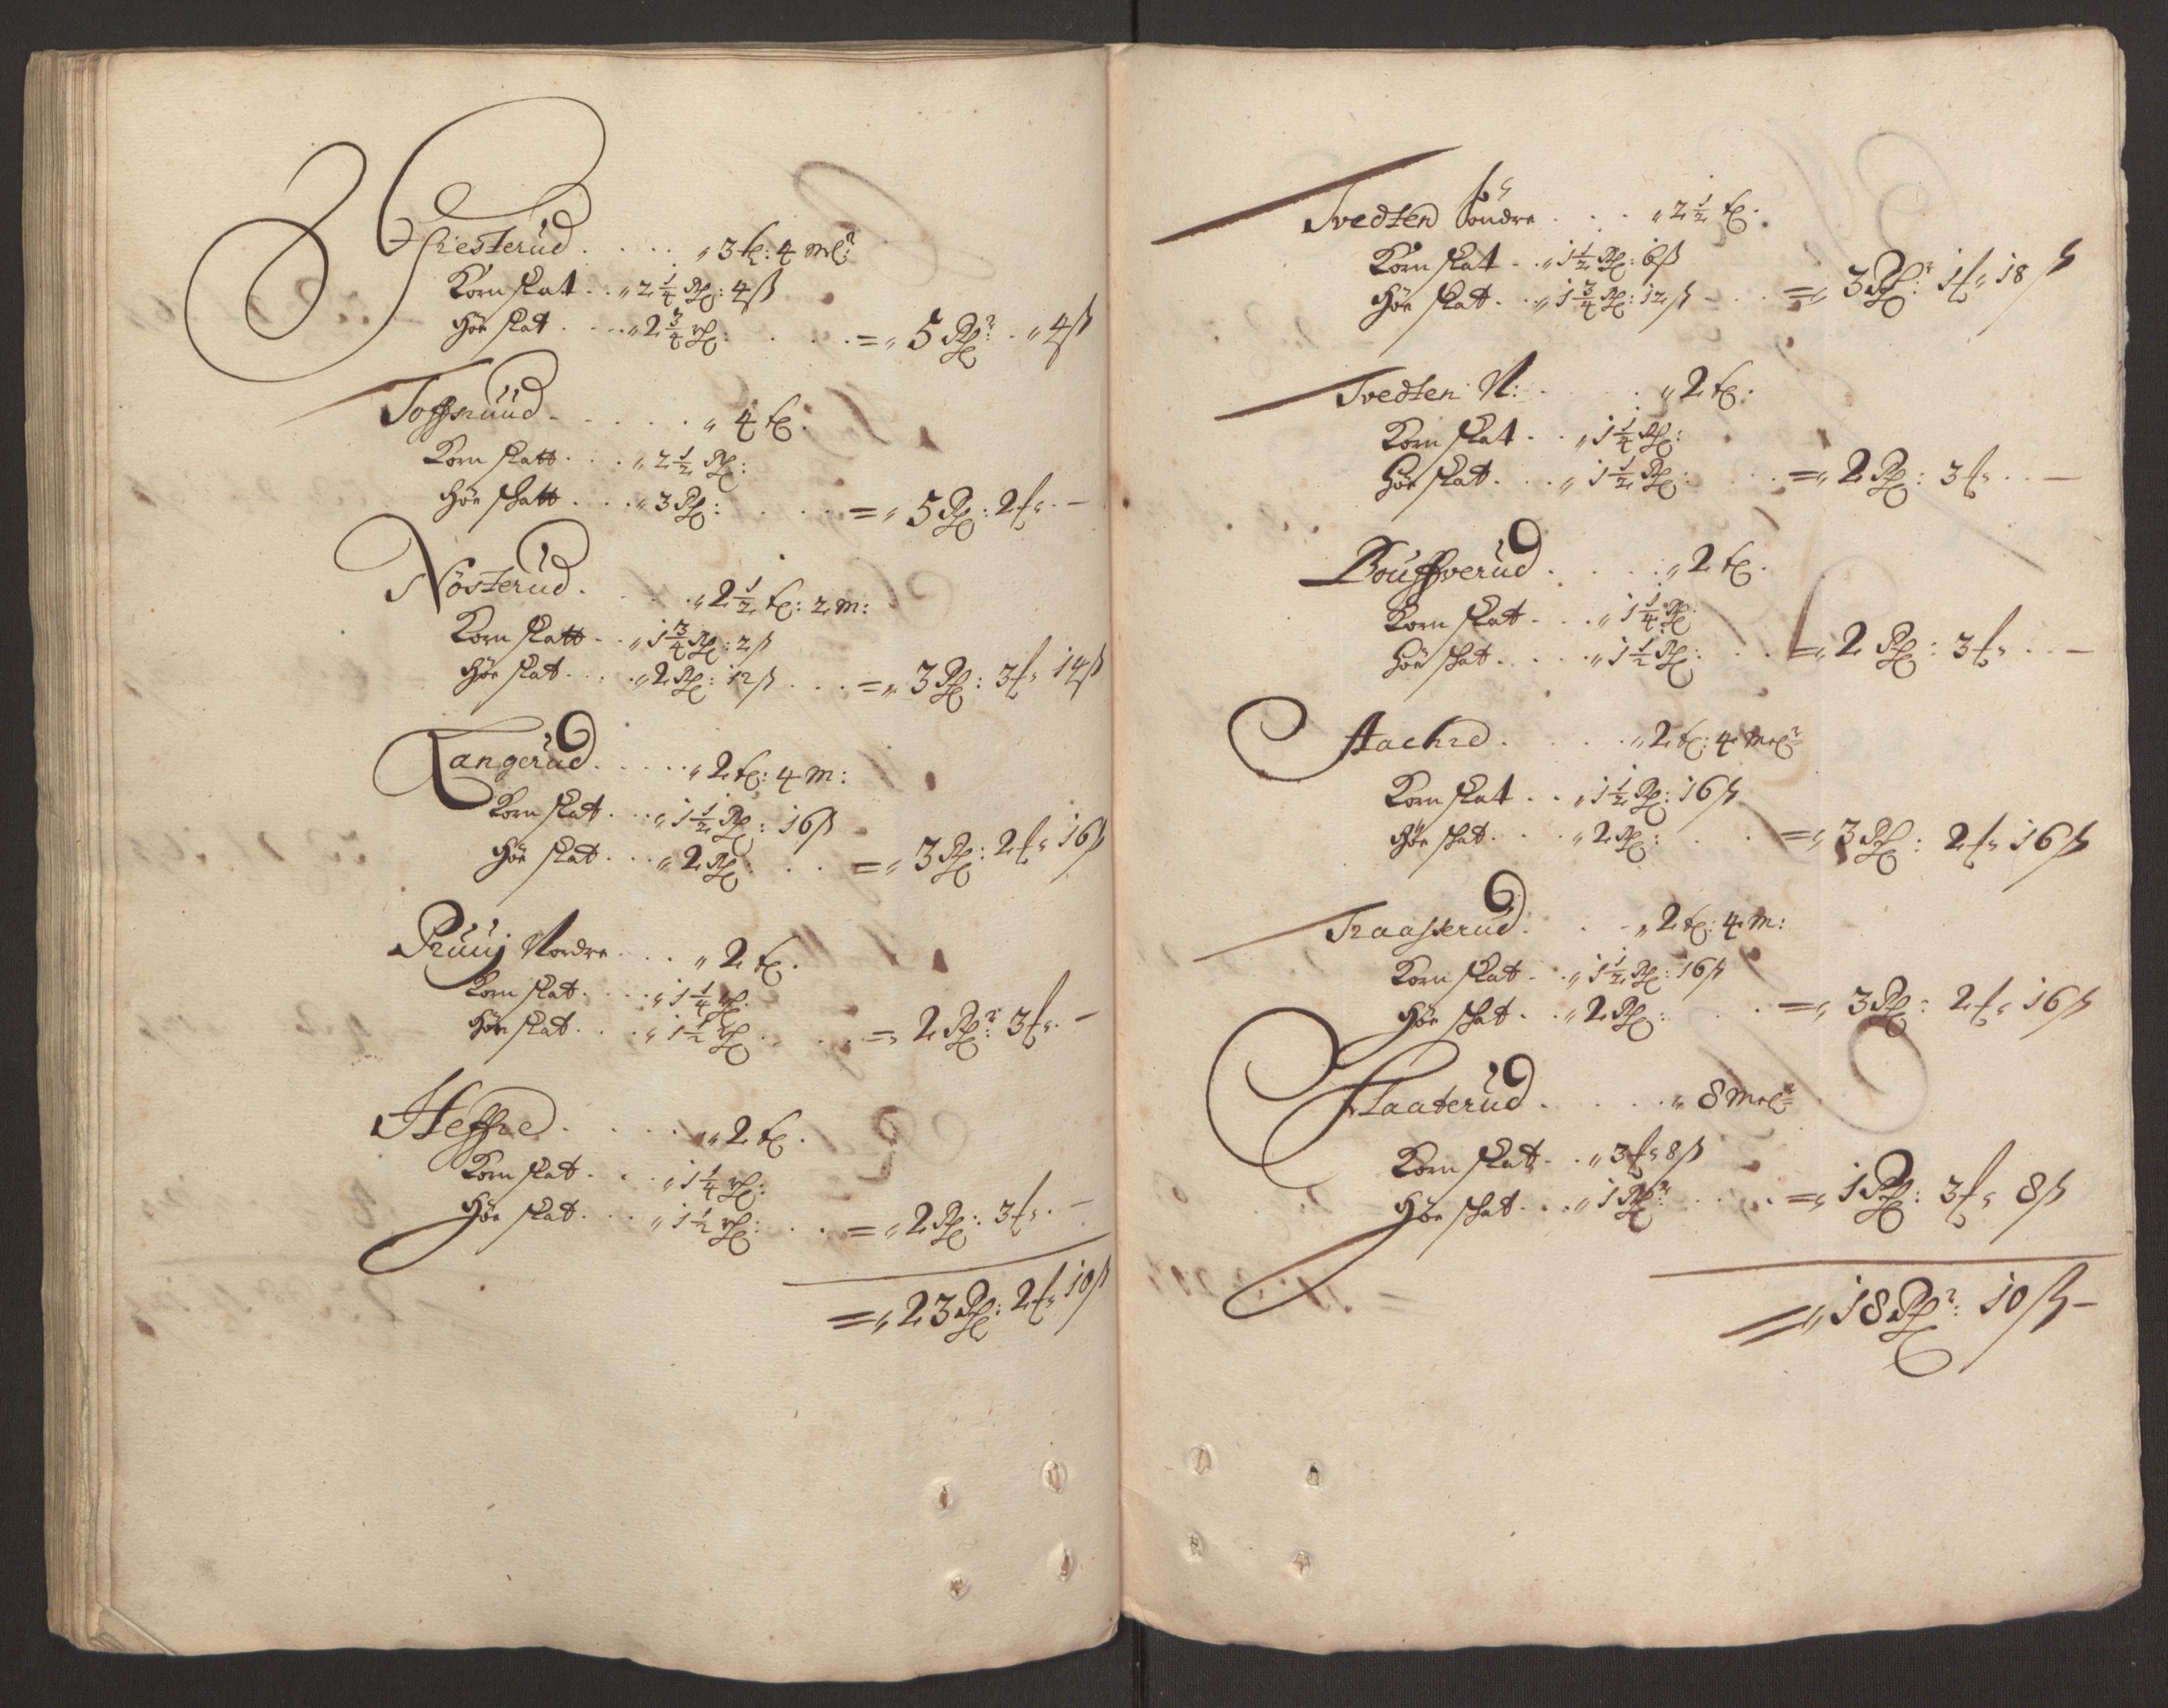 Hiesterud . . . . . „ 3 t: 4 mrl:
Korn skat . . „ 2 1/4 Rd: 4 ß
Höe skat . . . . „ 2 3/4 rd: . . . . = „ 5 Rdr: . „ 4 ß
Toffsruud . . . . . . „ 4 t:
Korn skatt . . . „ 2 1/2 Rd:
Höe skatt . . . „ 3 Rd: . . . . . = „ 5 Rd: 2 f „ . —
Nösterud . . . . „ 2 1/2 t: 2 m:
Korn skatt . . „ 1 3/4 Rd: 2 ß
Höe skat . . . . „ 2 Rd: 12 ß . . . . = „ 3 Rd: 3 f „ 14 ß
Langerud . . . . . „ 2 t: 4 m:
Korn skat . . . „ 1 1/2 Rd: 16 ß
Höe skat . . . „ 2 Rd: . . . = „ 3 Rd: 2 f „ 16 ß
Pruuj Nordre . . . „ 2 t.
Korn skat . . . . „ 1 1/4 rd.
Höe skat . . . „ 1 1/2 rd . . . . = „ 2 Rdr: 3 f „ . —
Heffre . . . . . „ 2 t.
Korn skat . . . „ 1 1/4 rd:
Höe skat . . . „ 1 1/2 rd: . . . = „ 2 Rd: 3 f „ . —
= „ 23 Rd: 2 f „ 10 ß
Tvedten Söndre . . . „ 2 1/2 t.
Korn skat . . „ 1 1/2 Rd: 6 ß
Höe skat . . „ 1 3/4 Rd: 12 ß . . . = „ 3 Rdr: 1 f „ 18 ß
Tvedten N: . . . . „ 2 t:
Korn skat . . „ 1 1/4 Rd:
Höe skat . . . „ 1 1/2 Rd: . . . = „ 2 Rd: 3 f „ . . —
Bouffverud . . . . . „ 2 t.
Korn skat . . . „ 1 1/4 Rd:
Höe skat . . . . „ 1 1/2 Rd: . . . = „ 2 Rd: 3 f „ . . —
Aachre . . . . . „ 2 t: 4 mrlr
Korn skat . . „ 1 1/2 Rd: 16 ß
Höe skat . . . . „ 2 Rd: . . . = „ 3 Rd: 2 f „ 16 ß
Traasserud . . . „ 2 t: 4 m:
Korn skat . . „ 1 1/2 Rd: 16 ß
Höe skat . . „ 2 Rd: . . . = „ 3 Rd: 2 f „ 16 ß
Flaaterud . . . . . „ 8 mrlr
Korn skat . . „ 3 f „ 8 ß
Höe skat . . . „ 1 Rdr: . . . . = „ 1 Rd: 3 f „ 8 ß
= „ 18 Rdr: 10 ß —